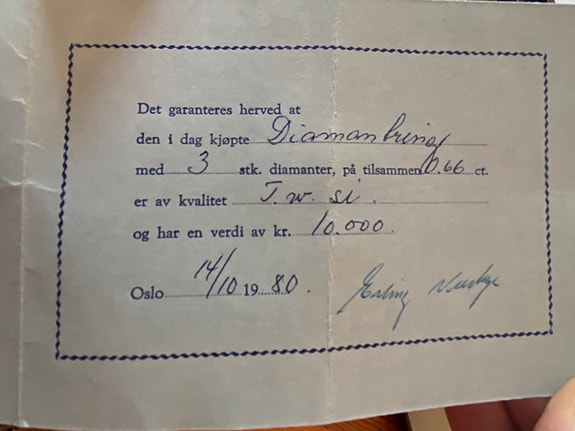 Det garanteres herved at
den i dag kjøpte Diamantring
med 3 stk. diamanter, på tilsammen 0.66 ct.
er av kvalitet T.w. si.
og har en verdi av kr. 10.000.
Oslo 14/10 1980.
Erling